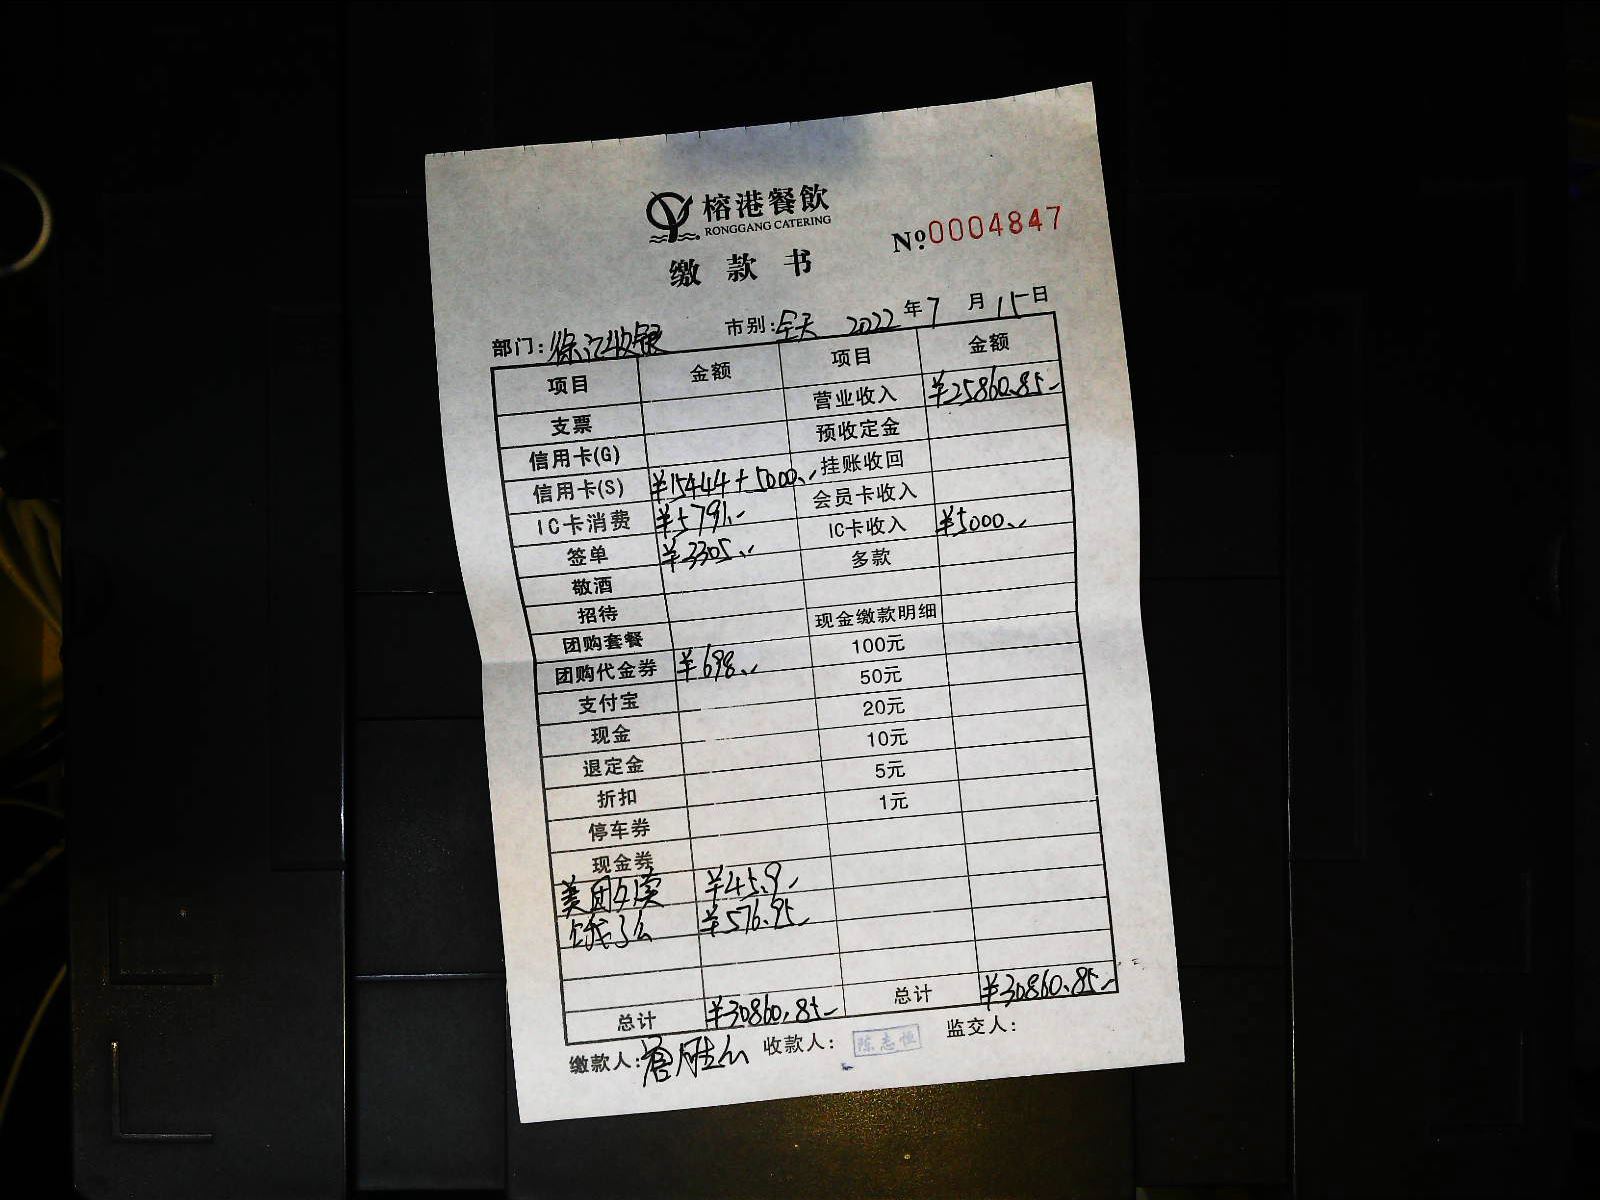 榕港餐飲
RONGGANG CATERING
缴款书
№0004847
部门:徐汇收银 市别:全天 2022年7月15日
项目 金额 项目 金额
支票 营业收入 ¥25860.85
信用卡(G) 预收定金
信用卡(S) ¥15444+5000 挂账收回
IC卡消费 ¥5791 会员卡收入
签单 ¥3305 IC卡收入 ¥5000
敬酒 多款
招待
团购套餐 现金缴款明细
团购代金券 ¥698 100元
支付宝 50元
现金 20元
退定金 10元
折扣 5元
停车券 1元
现金券
美团外卖 ¥45.9
饿了么 ¥576.95
总计 ¥30860.85 总计 ¥30860.85
缴款人: 收款人: 陈志恒 监交人: